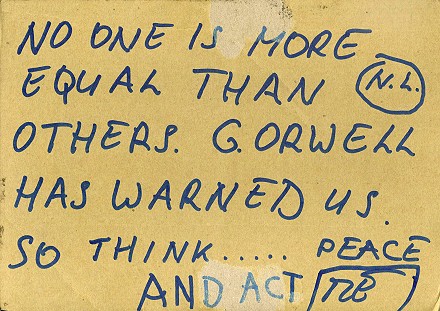 NO ONE IS MORE
EQUAL THAN N.L.
OTHERS. G. ORWELL
HAS WARNED US.
SO THINK..... PEACE
AND ACT